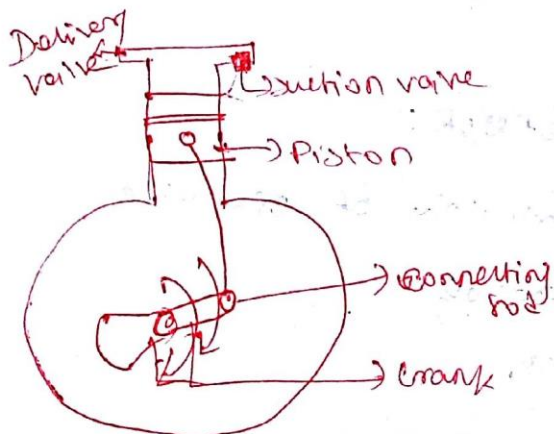 Delivery
valve
suction valve
Piston
Connecting
rod
Crank